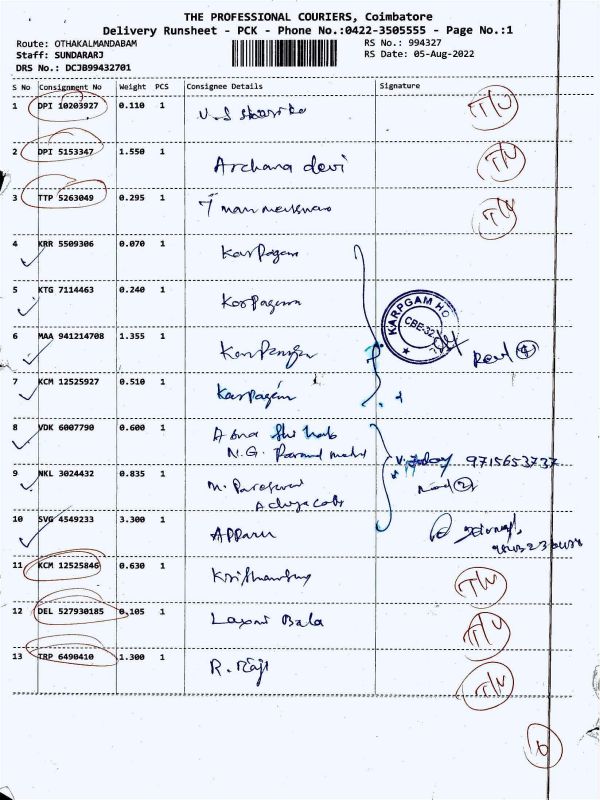 THE PROFESSIONAL COURIERS, Coimbatore
Delivery Runsheet - PCK - Phone No.:0422-3505555 - Page No.:1
Route: OTHAKALMANDABAM
RS No.: 994327
Staff: SUNDARARJ
RS Date: 05-Aug-2022
DRS No.: DCJB99432701
S No Consignment No Weight PCS Consignee Details Signature
1 DPI 10203927 0.110 1 T/U
2 DPI 5153347 1.550 1 Archana devi T/U
3 TTP 5263049 0.295 1 T/U
4 KRR 5509306 0.070 1 Karpagam
5 KTG 7114463 0.240 1 Karpagam
KARPGAM HO
CBE-32
6 MAA 941214708 1.355 1 Recd 4
7 KCM 12525927 0.510 1 Karpagam
8 VDK 6007790 0.600 1
N.G.
9715653737
9 NKL 3024432 0.835 1
2
10 SVG 4549233 3.300 1
11 KCM 12525846 0.630 1 T/U
12 DEL 527930185 0.105 1 Laxmi Bala T/U
13 TRP 6490410 1.300 1 R. T/U
6